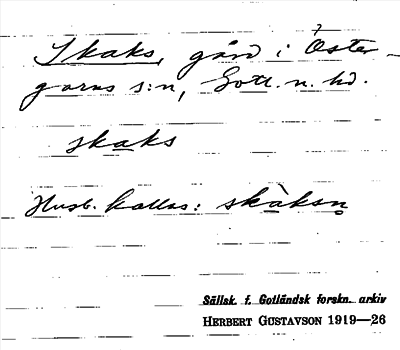 Skaks, gård i Öster-
garns s:n, Gotl. n. hd.
skaks
Husb. kallas: skàksn̥
Sällsk. f. Gotländsk forskn. arkiv
HERBERT GUSTAVSON 1919—26